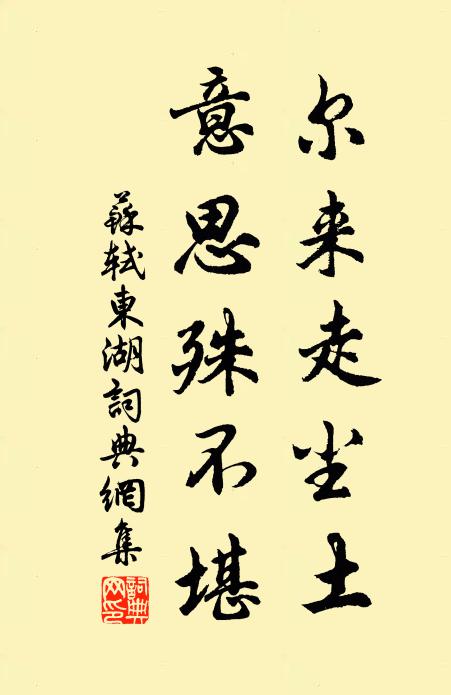 尔来走尘土
意思殊不堪
蘇轼東湖詞典網集
詞典
网印